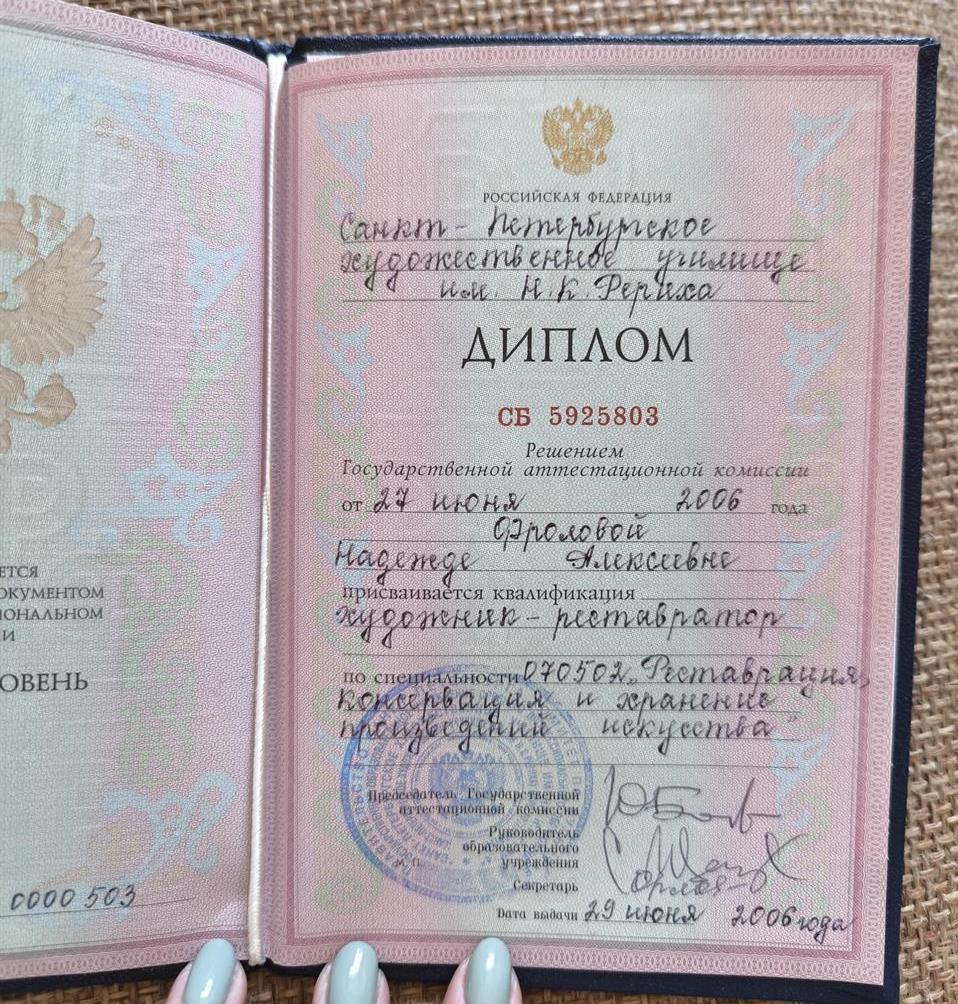 ЕТСЯ
ОКУМЕНТОМ
ИОНАЛЬНОМ
И
ОВЕНЬ
0000 503
РОССИЙСКАЯ ФЕДЕРАЦИЯ
Санкт - Петербургское
художественное училище
им. Н.К. Рериха
ДИПЛОМ
СБ 5925803
Решением
Государственной аттестационной комиссии
от 27 июня 2006 года
Фроловой
Надежде Алексеевне
присваивается квалификация
художник - реставратор
по специальности 070502 „Реставрация,
консервация и хранение
произведений искусства"
Председатель Государственной
аттестационной комиссии
Руководитель
образовательного
учреждения
М. П.
Секретарь
Дата выдачи 29 июня 2006 года